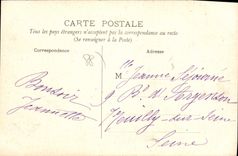 CARTE POSTALE
Tous les pays étrangers n'acceptent pas la correspondance au recto
(Se renseigner à la Poste)
Correspondance
Adresse
Bonsoir
Jeannette
M Jeanne Séjourné
9 Bd d'Argenson
Neuilly-sur-Seine
Seine